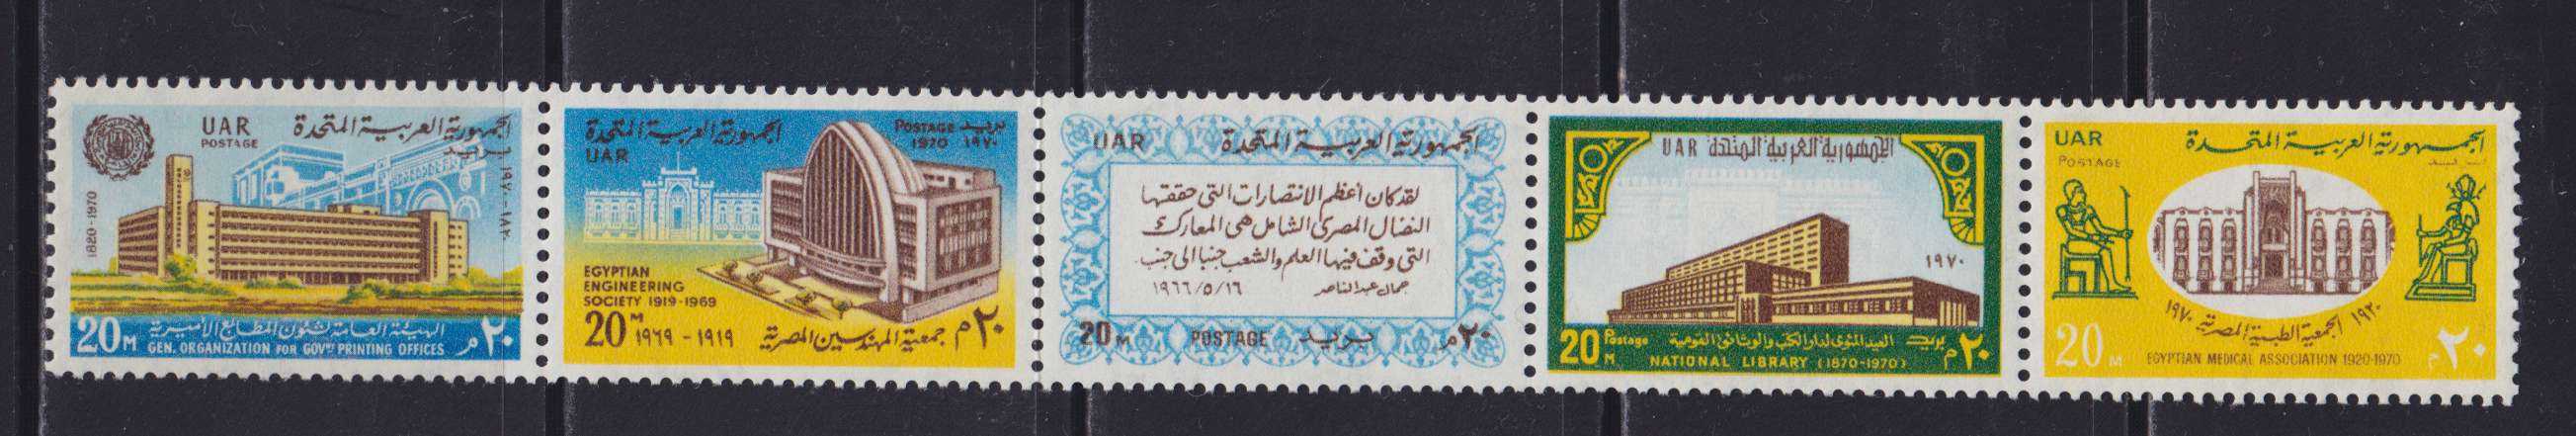 UAR
POSTAGE
الجمهورية العربية المتحدة
بريد
1820-1970
١٩٧٠-١٨٢٠
20 M
الهيئة العامة لشئون المطابع الأميرية
GEN. ORGANIZATION FOR GOVT PRINTING OFFICES
٢٠ م
الجمهورية العربية المتحدة
UAR
POSTAGE بريد
1970 ١٩٧٠
EGYPTIAN
ENGINEERING
SOCIETY 1919-1969
20 M
١٩٦٩ - ١٩١٩
جمعية المهندسين المصرية
٢٠ م
UAR
الجمهورية العربية المتحدة
لقد كان أعظم الانتصارات التى حققتها
النضال المصرى الشامل هى المعارك
التى وقف فيها العلم والشعب جنبا الى جنب
جمال عبد الناصر
١٩٦٦/٥/١٦
20 M
POSTAGE
بريد
٢٠ م
UAR الجمهورية العربية المتحدة
١٩٧٠
20 M
Postage
العيد المئوى لدار الكتب والوثائق القومية
بريد
NATIONAL LIBRARY (1870-1970)
٢٠ م
UAR
POSTAGE
الجمهورية العربية المتحدة
١٩٢٠ الجمعية الطبية المصرية ١٩٧٠
20 M
EGYPTIAN MEDICAL ASSOCIATION 1920-1970
٢٠ م